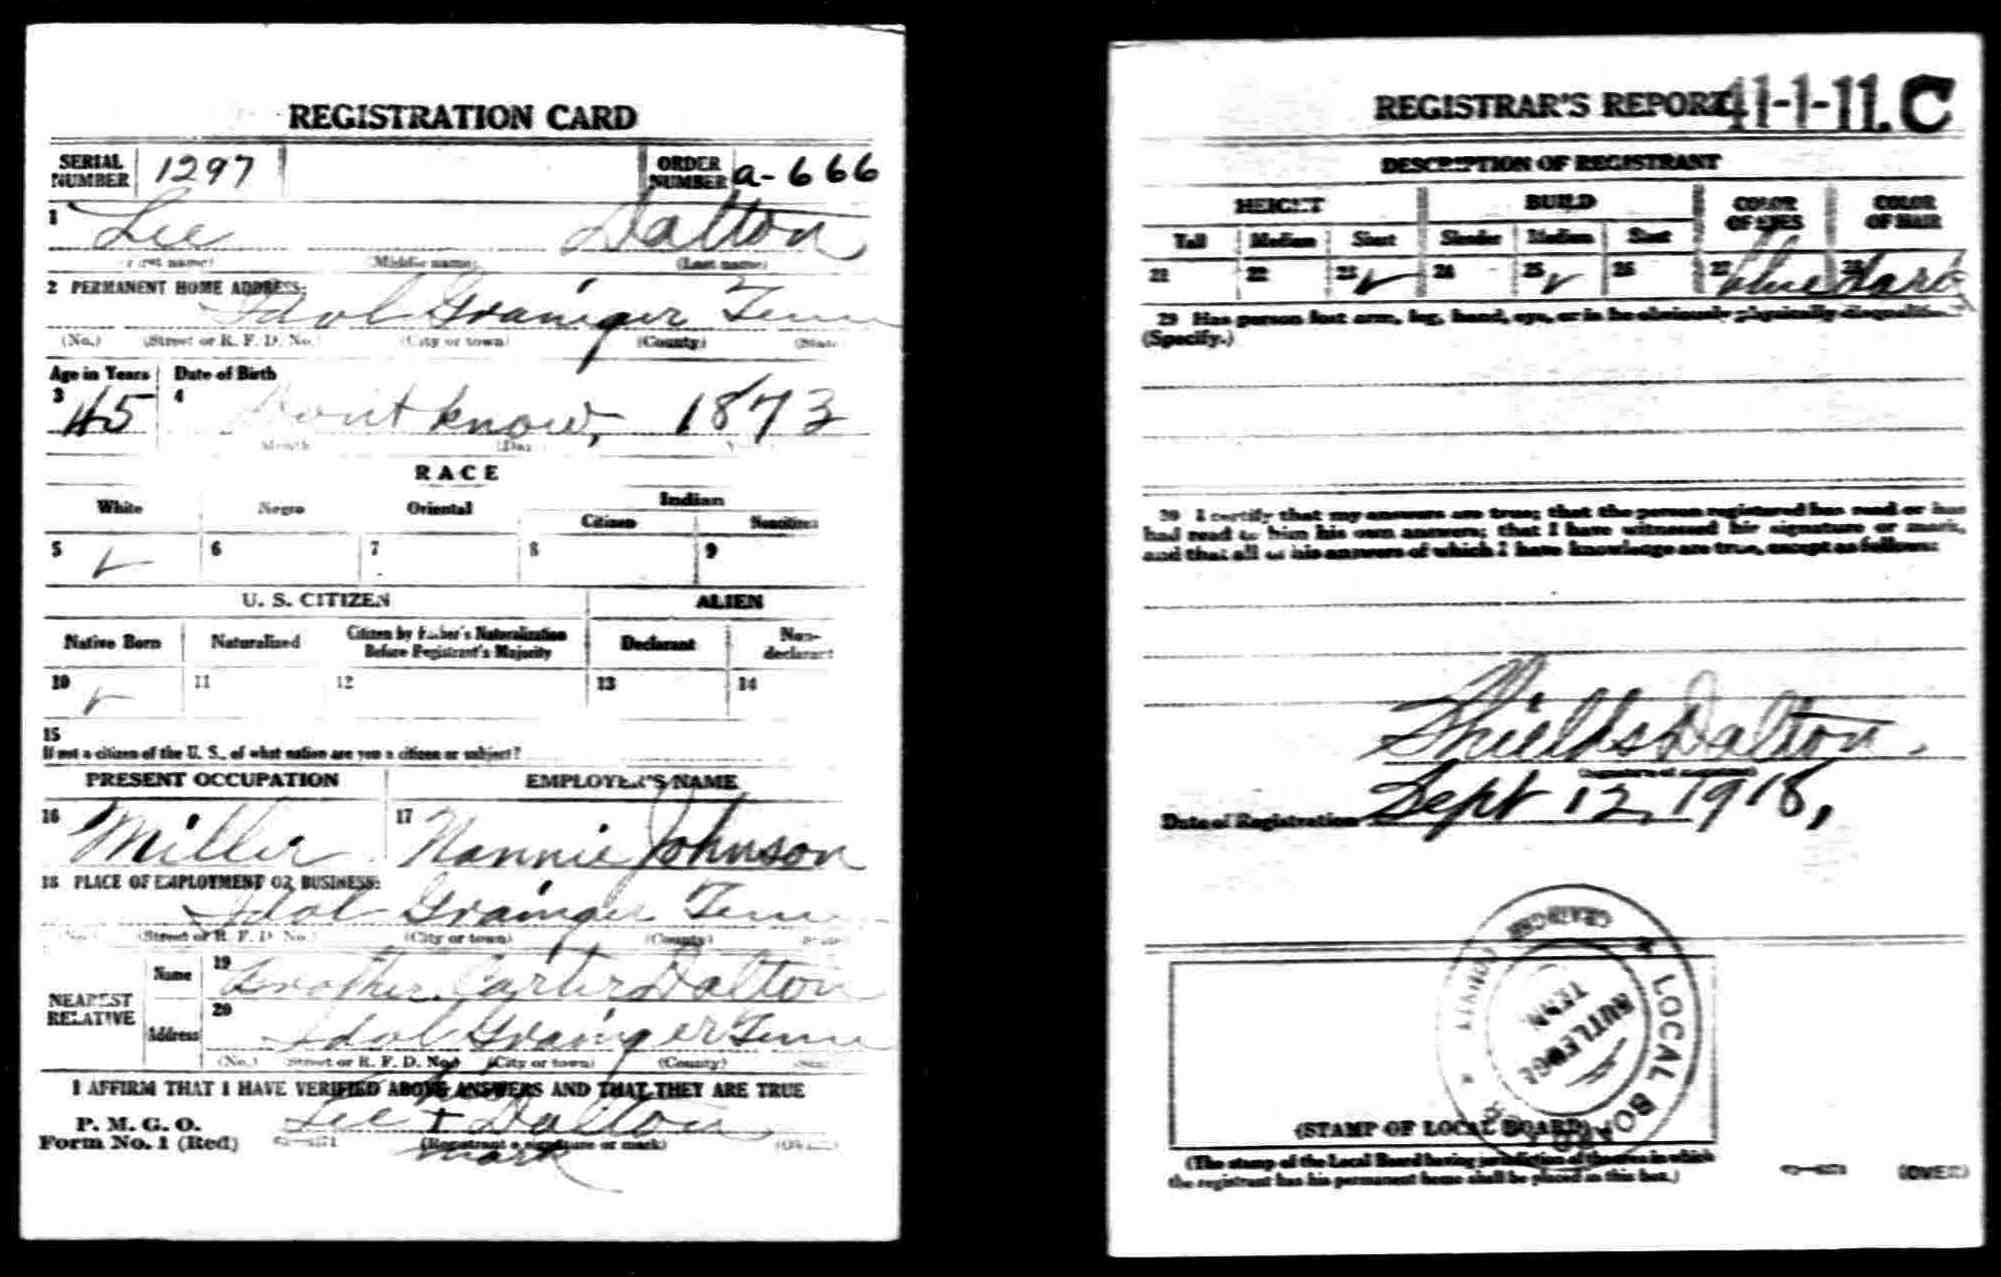 REGISTRATION CARD
SERIAL NUMBER 1297 ORDER NUMBER a-666
1 Lee Dalton
(First name) (Middle name) (Last name)
2 PERMANENT HOME ADDRESS:
Idol Grainger Tenn
(No.) (Street or R. F. D. No.) (City or town) (County) (State)
Age in Years Date of Birth
3 45 4 Dont know, 1873
Month (Day
RACE
White Negro Oriental Indian
Citizen Noncitizen
5 ✓ 6 7 8 9
U. S. CITIZEN ALIEN
Native Born Naturalized Citizen by Father's Naturalization Before Registrant's Majority Declarant Non-declarant
10 ✓ 11 12 13 14
15
If not a citizen of the U. S., of what nation are you a citizen or subject?
PRESENT OCCUPATION EMPLOYER'S NAME
16 Miller 17 Nannie Johnson
18 PLACE OF EMPLOYMENT OR BUSINESS:
Idol Grainger Tenn
(No.) (Street or R. F. D. No.) (City or town) (County) (State)
NEAREST RELATIVE
Name 19 Brother Carter Dalton
Address 20 Idol Grainger Tenn
(No.) (Street or R. F. D. No.) (City or town) (County) (State)
I AFFIRM THAT I HAVE VERIFIED ABOVE ANSWERS AND THAT THEY ARE TRUE
P. M. G. O.
Form No. 1 (Red) Lee + Dalton
(Registrant's signature or mark) (OVER)
mark
REGISTRAR'S REPORT 41-1-11. C
DESCRIPTION OF REGISTRANT
HEIGHT BUILD COLOR OF EYES COLOR OF HAIR
Tall Medium Short Slender Medium Stout
21 22 23 ✓ 24 25 ✓ 26 27 blue 28 dark
29 Has person lost arm, leg, hand, eye, or is he obviously physically disqualified?
(Specify.)
30 I certify that my answers are true; that the person registered has read or has
had read to him his own answers; that I have witnessed his signature or mark,
and that all of his answers of which I have knowledge are true, except as follows:
Shields Dalton.
Date of Registration Sept 12, 1918,
LOCAL BOARD FOR GRAINGER COUNTY
RUTLEDGE
TENN.
(STAMP OF LOCAL BOARD)
(The stamp of the Local Board having jurisdiction of the area in which
the registrant has his permanent home shall be placed in this box.)
(OVER)